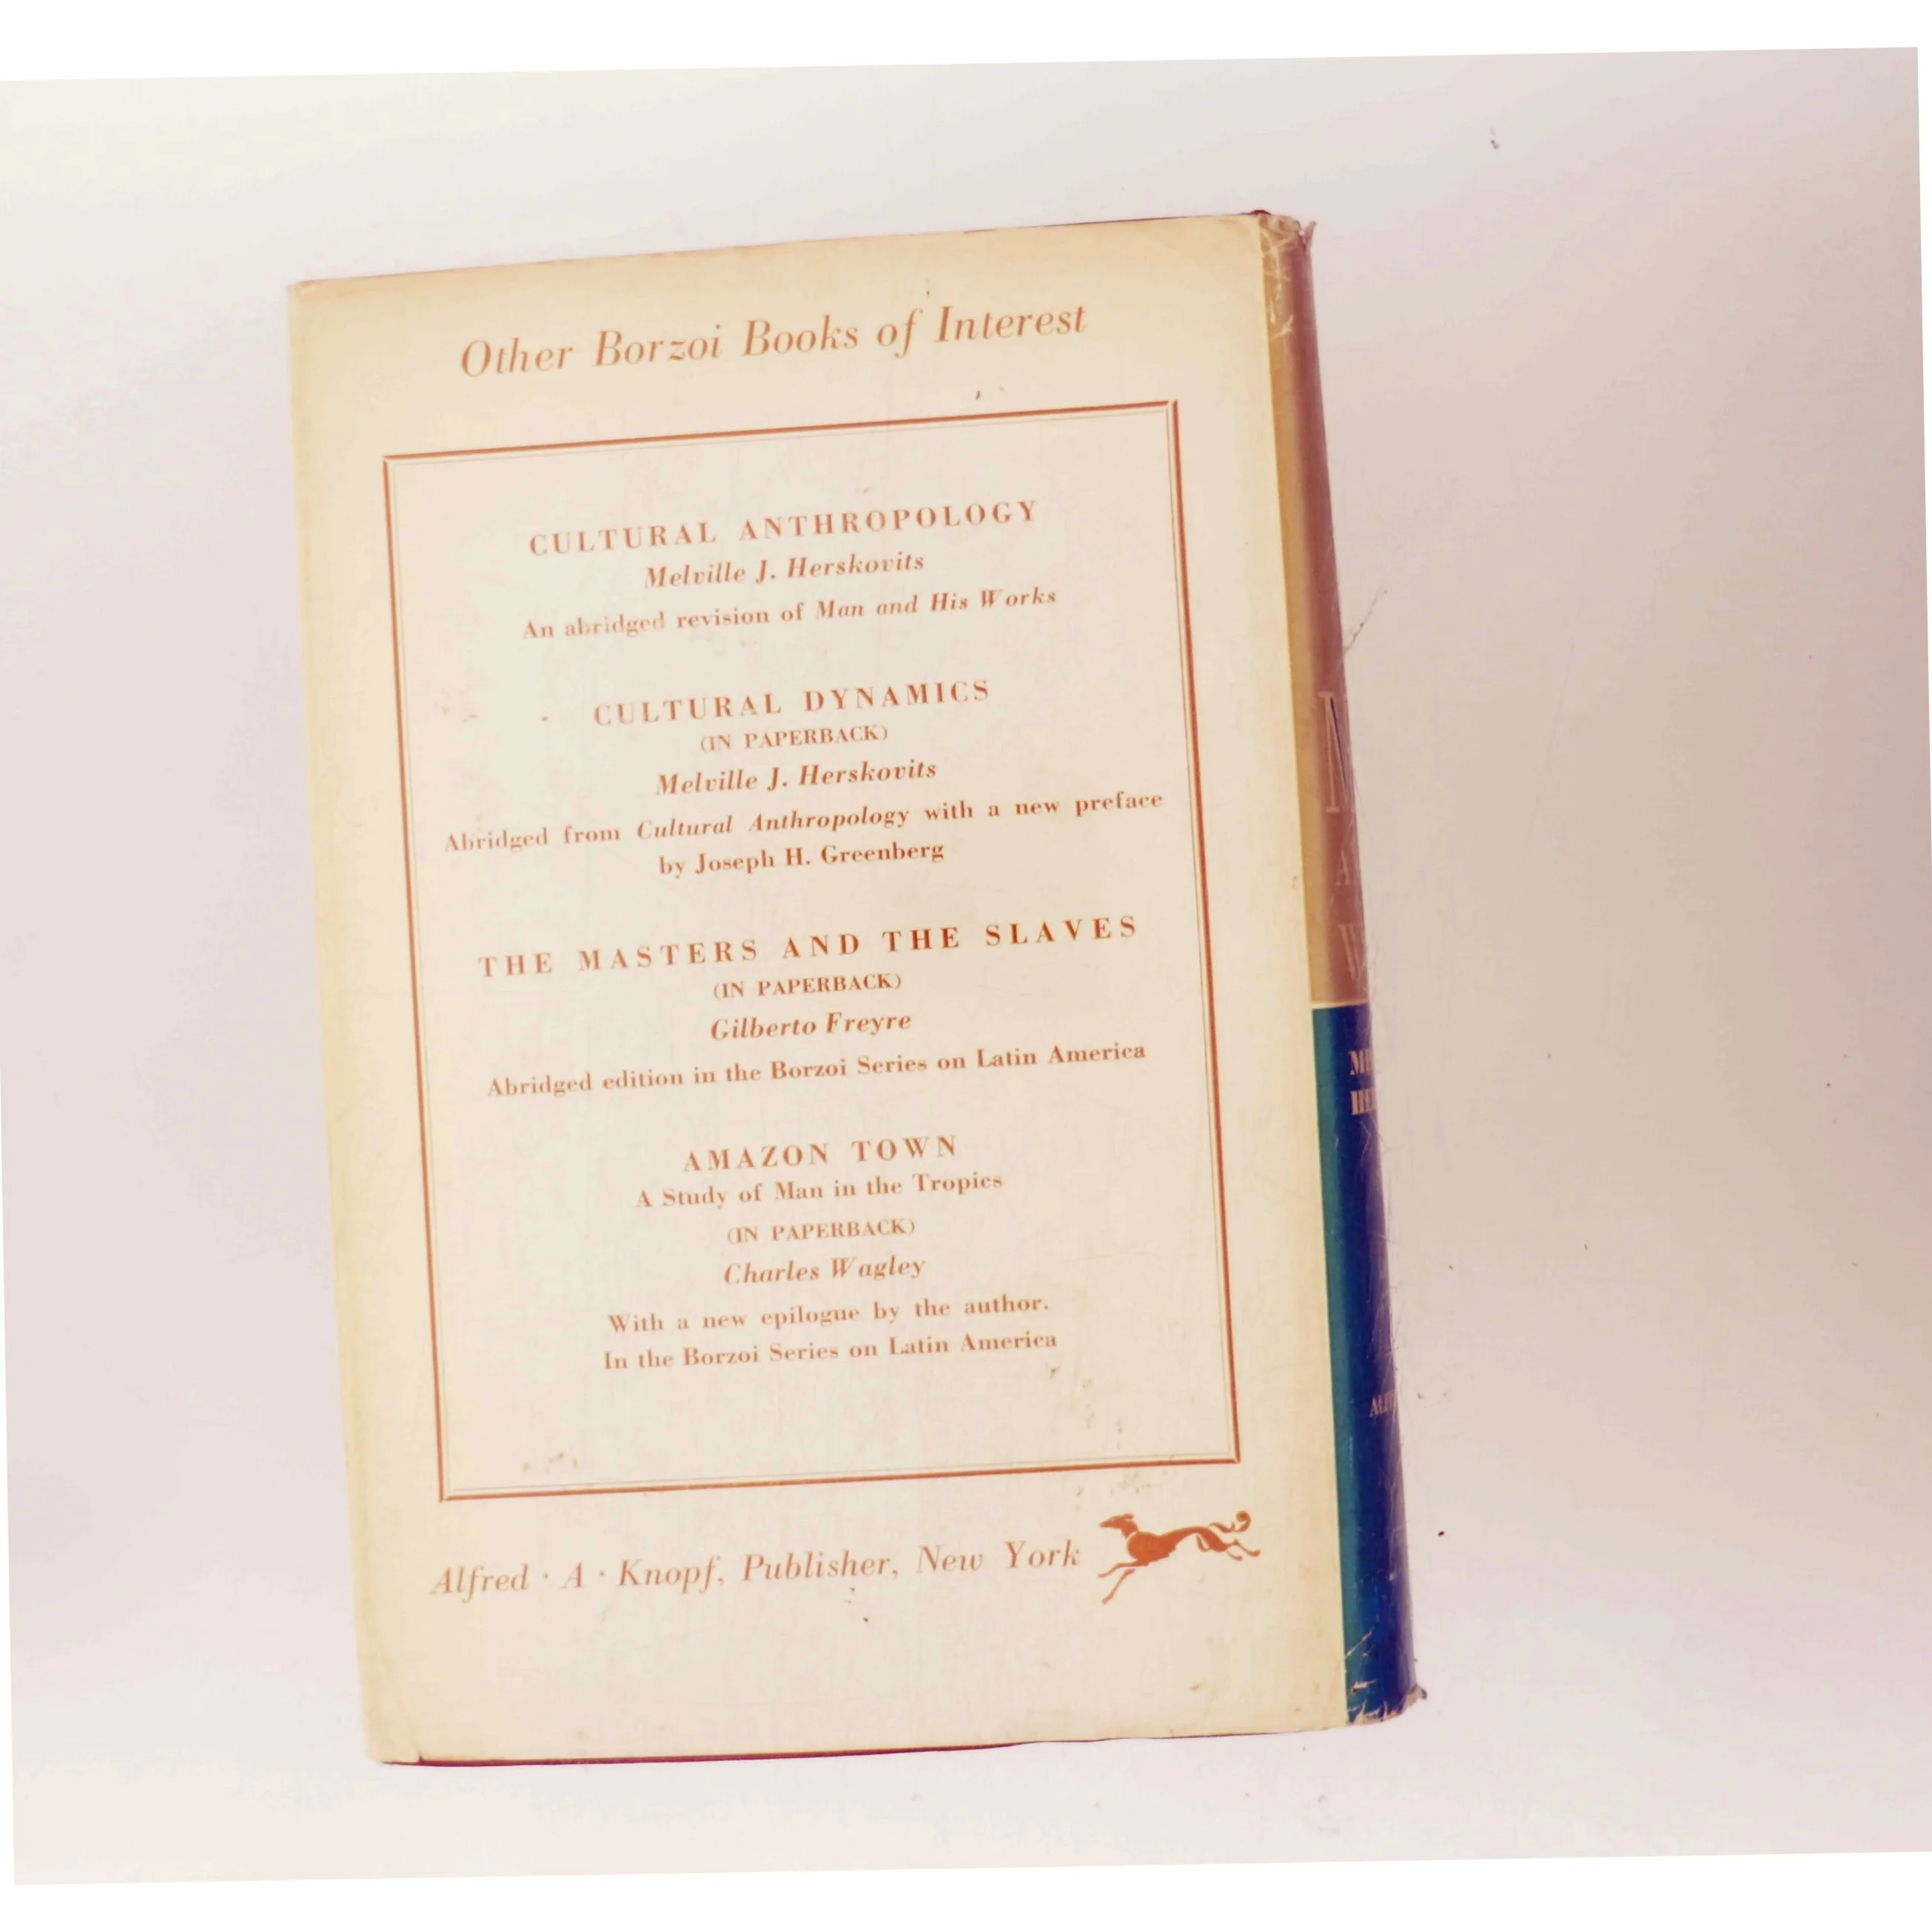 Other Borzoi Books of Interest
CULTURAL ANTHROPOLOGY
Melville J. Herskovits
An abridged revision of Man and His Works
CULTURAL DYNAMICS
(IN PAPERBACK)
Melville J. Herskovits
Abridged from Cultural Anthropology with a new preface
by Joseph H. Greenberg
THE MASTERS AND THE SLAVES
(IN PAPERBACK)
Gilberto Freyre
Abridged edition in the Borzoi Series on Latin America
AMAZON TOWN
A Study of Man in the Tropics
(IN PAPERBACK)
Charles Wagley
With a new epilogue by the author.
In the Borzoi Series on Latin America
Alfred · A · Knopf, Publisher, New York